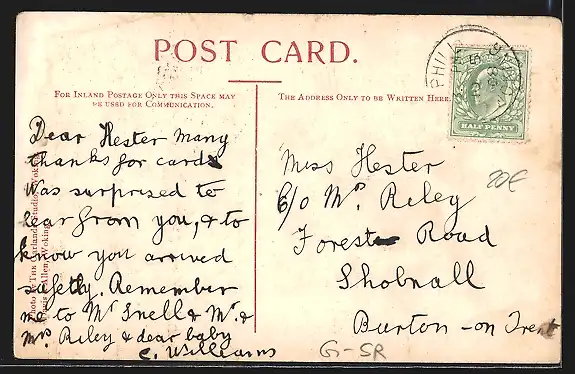 POST CARD.
FOR INLAND POSTAGE ONLY THIS SPACE MAY
BE USED FOR COMMUNICATION.
THE ADDRESS ONLY TO BE WRITTEN HERE.
HALF PENNY
Dear Hester many
thanks for cards
was surprised to
hear from you, & to
know you arrived
safetly. Remember
me to Mr Snell & Mr. &
Mrs Riley & dear baby
C. Williams
Miss Hester
C/o Mrs Riley
Forest Road
Shobnall
Burton-on Trent
20€
G-SR